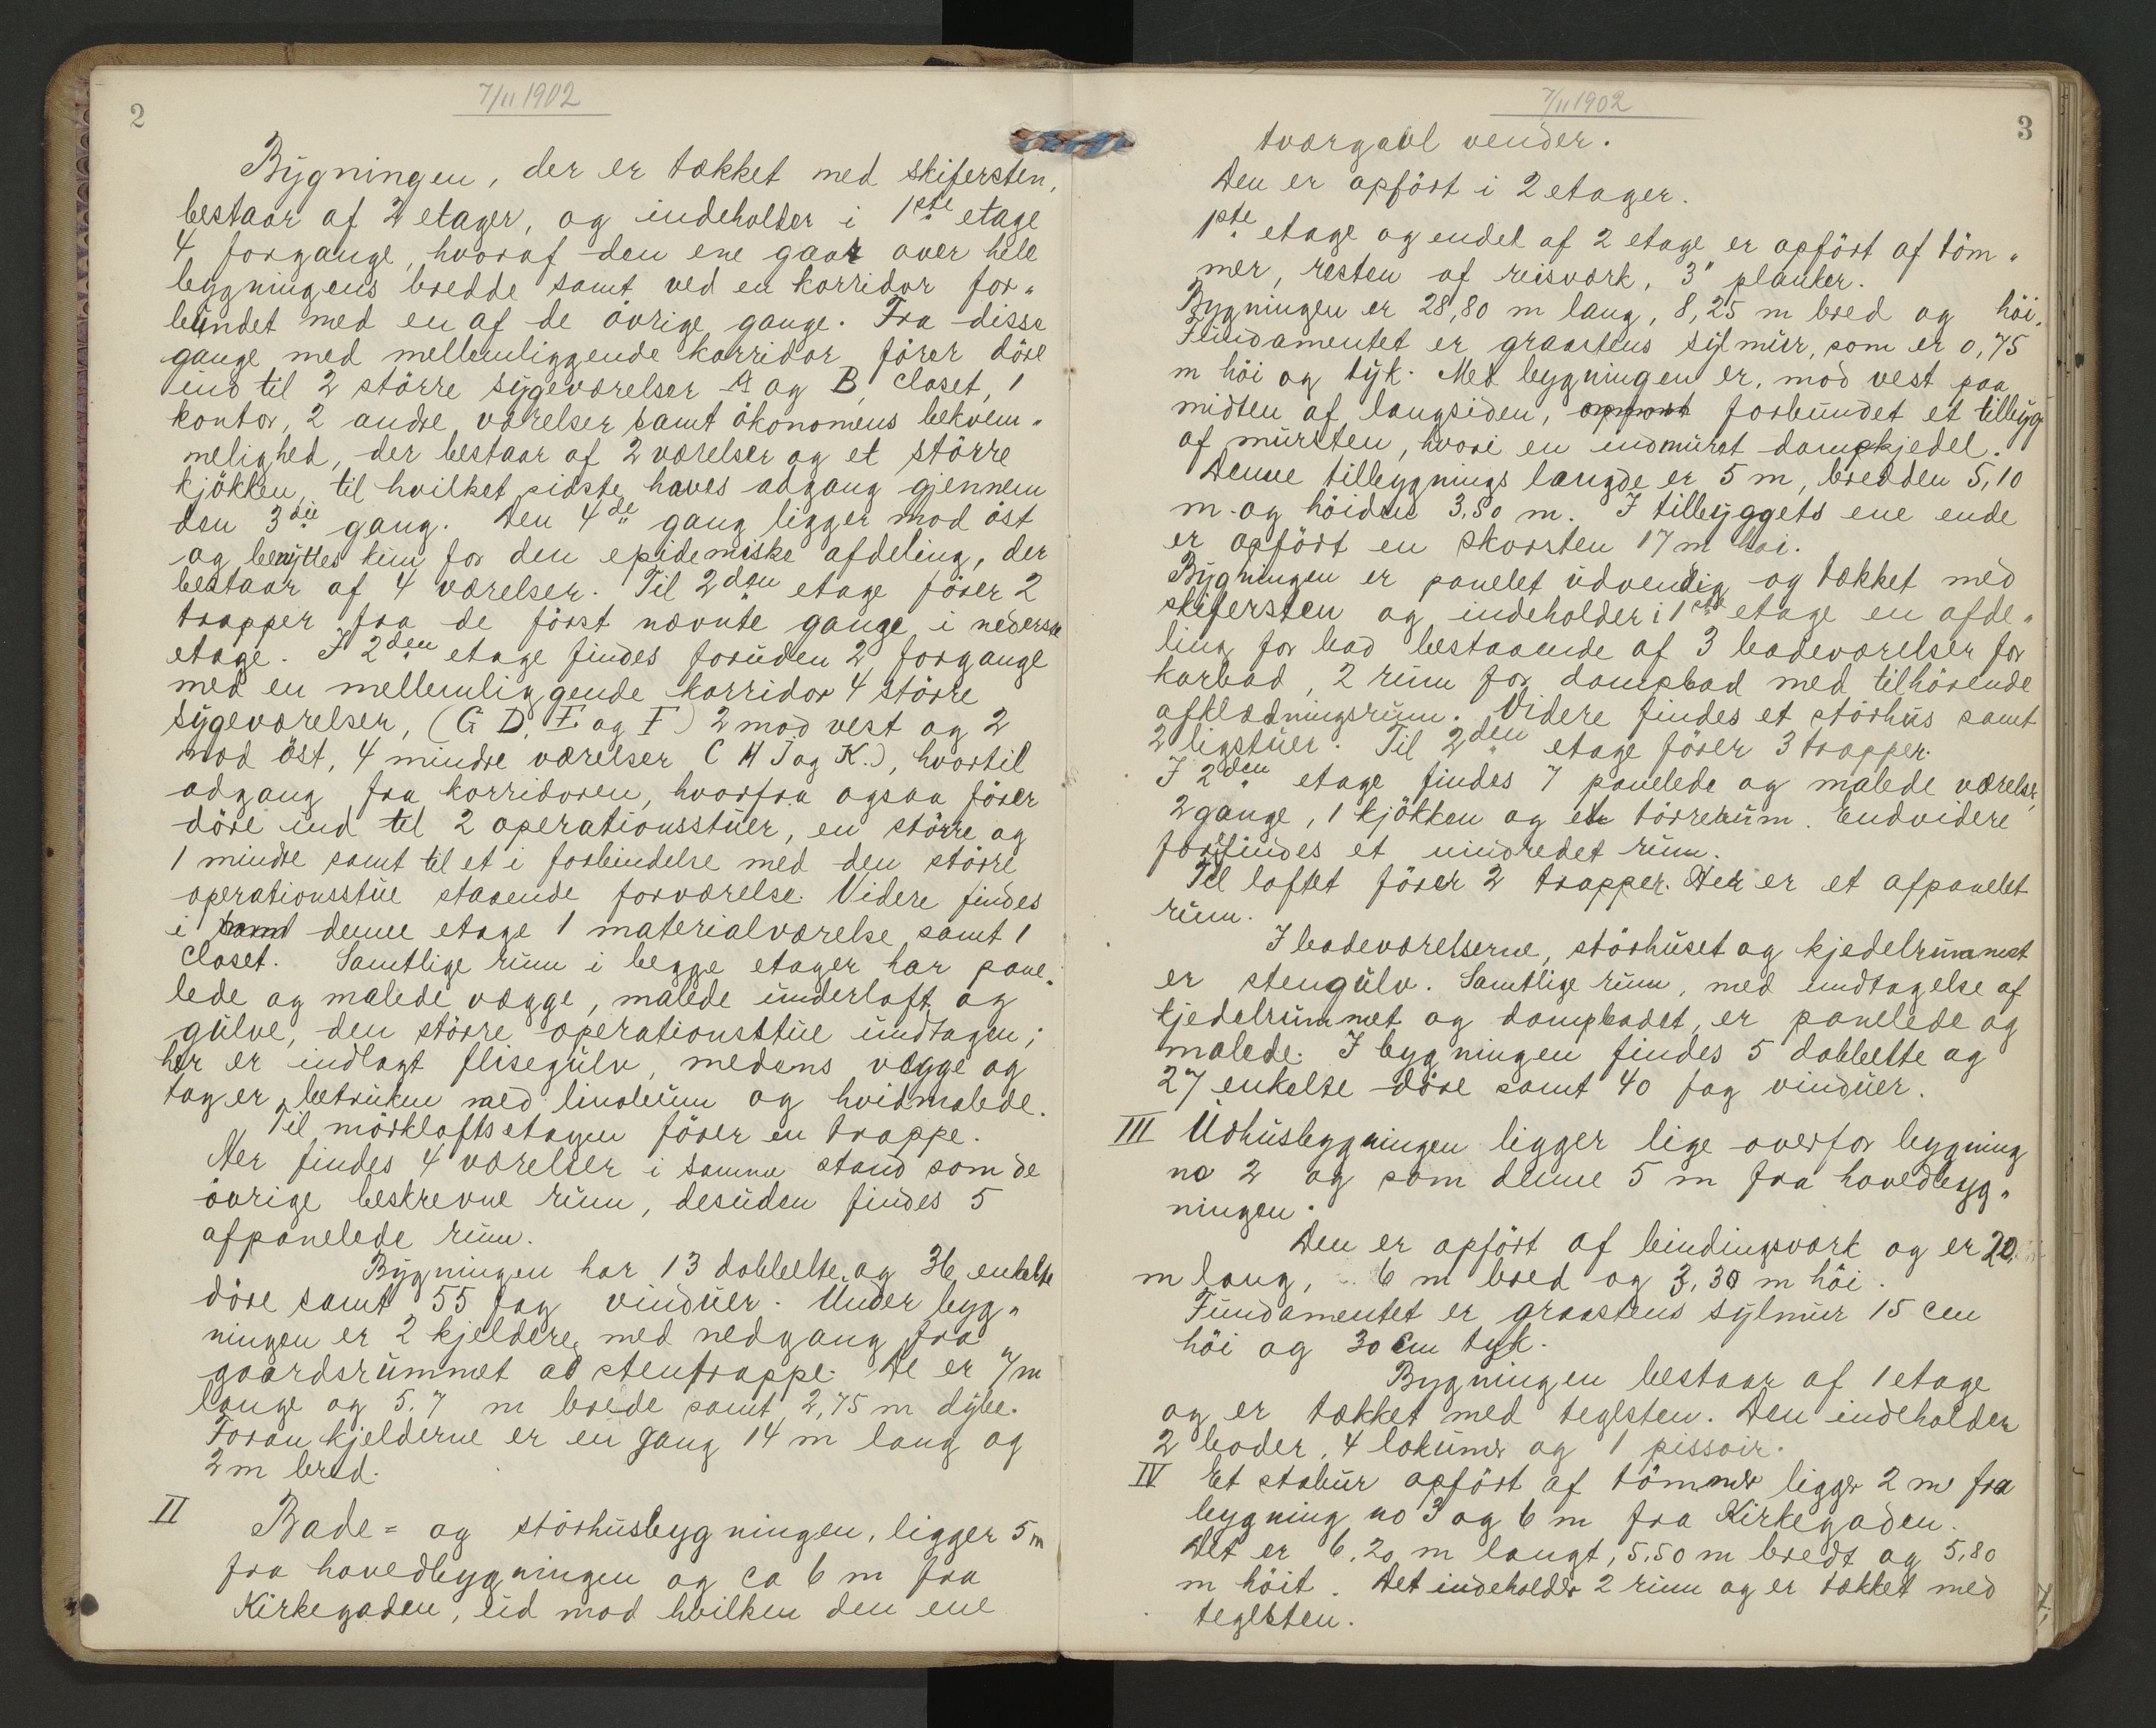 2
7/11 1902
Bygningen, der er tækket med skifersten,
bestaar af 2 etager, og indeholder i 1ste etage
4 forgange, hvoraf den ene gaar over hele
bygningens bredde samt ved en korridor for„
bundet med en af de övrige gange. Fra disse
gange med mellemliggende korridor förer döre
ind til 2 större sygeværelser A og B, closet, 1
kontor, 2 andre værelser samt ökonomens bekvem„
melighed, der bestaar af 2 værelser og et större
kjökken, til hvilket sidste haves adgang gjennem
den 3die gang. Den 4de gang ligger mod öst
og benyttes kun for den epidemiske afdeling, der
bestaar af 4 værelser. Til 2den etage förer 2
trapper fra de först nævnte gange i nederste
etage. I 2den etage findes foruden 2 forgange
med en mellemliggende korridor 4 större
sygeværelser, (G D, E og F) 2 mod vest og 2
mod öst, 4 mindre værelser (H J og K.), hvortil
adgang fra korridoren, hvorfra ogsaa förer
döre ind til 2 operationsstuer, en större og
1 mindre samt til et i forbindelse med den större
operationsstue staaende forværelse. Videre findes
i denne etage 1 materialværelse samt 1
closet. Samtlige rum i begge etager har pane„
lede og malede vægge, malede underloft og
gulve, den större operationsstue undtagen;
her er indlagt flisegulv, medens vægge og
tag er betrukne med linoleum og hvidmalede.
Til mörkloftsetagen förer en trappe.
Her findes 4 værelser i samme stand som de
övrige beskrevne rum, desuden findes 5
afpanelede rum.
Bygningen har 13 dobbelte og 36 enkelte
döre samt 55 fag vinduer. Under byg„
ningen er 2 kjeldere, med nedgang fra
gaardsrummet ad stentrappe. De er 7 m
lange og 5.7 m brede samt 2,75 m dybe.
Foran kjelderne er en gang 14 m lang og
2 m bred.
II Bade= og störhusbygningen, ligger 5 m
fra hovedbygningen og ca 6 m fra
Kirkegaden, ud mod hvilken den ene
3
7/11 1902
tværgavl vender.
Den er opfört i 2 etager.
1ste etage og endel af 2 etage er opfört af töm„
mer, resten af reisværk, 3" planker.
Bygningen er 28,80 m lang, 8,25 m bred og höi.
Fundamentet er graastens sylmur, som er 0,75
m höi og tyk. Med bygningen er, mod vest paa
midten af langsiden, forbundet et tilbyg
af mursten, hvori en indmuret dampkjedel.
Denne tilbygnings længde er 5 m, bredden 5,10
m. og höiden 3.50 m. I tilbyggets ene ende
er opfört en skorsten 17 m höi.
Bygningen er panelet udvendig og tækket med
skifersten og indeholder i 1ste etage en afde„
ling for bad bestaaende af 3 badeværelser for
karbad, 2 rum for dampbad med tilhörende
afklædningsrum. Videre findes et störhus samt
2 ligstuer. Til 2den etage förer 3 trapper.
I 2den etage findes 7 panelede og malede værelser,
2 gange, 1 kjökken og et törrerum. Endvidere
forfindes et uindredet rum.
Til loftet förer 2 trapper. Her er et afpanelet
rum.
I badeværelserne, störhuset og kjedelrummet
er stengulv. Samtlige rum, med undtagelse af
kjedelrummet og dampbadet, er panelede og
malede. I bygningen findes 5 dobbelte og
27 enkelte döre samt 40 fag vinduer.
III Udhusbygningen ligger lige overfor bygning
no 2 og som denne 5 m fra hovedbyg„
ningen.
Den er opfört af bindingsværk og er 20
m lang, 6 m bred og 3,30 m höi.
Fundamentet er graastens sylmur 15 cm
höi og 30 cm tyk.
Bygningen bestaar af 1 etage
og er tækket med teglsten. Den indeholder
2 boder, 4 lokumer og 1 pissoir.
IV Et stabur opfört af tömmer ligger 2 m fra
bygning no 3 og 6 m fra Kirkegaden.
Det er 6.20 m langt, 5.50 m bredt og 5.80
m höit. Det indeholder 2 rum og er tækket med
teglsten.